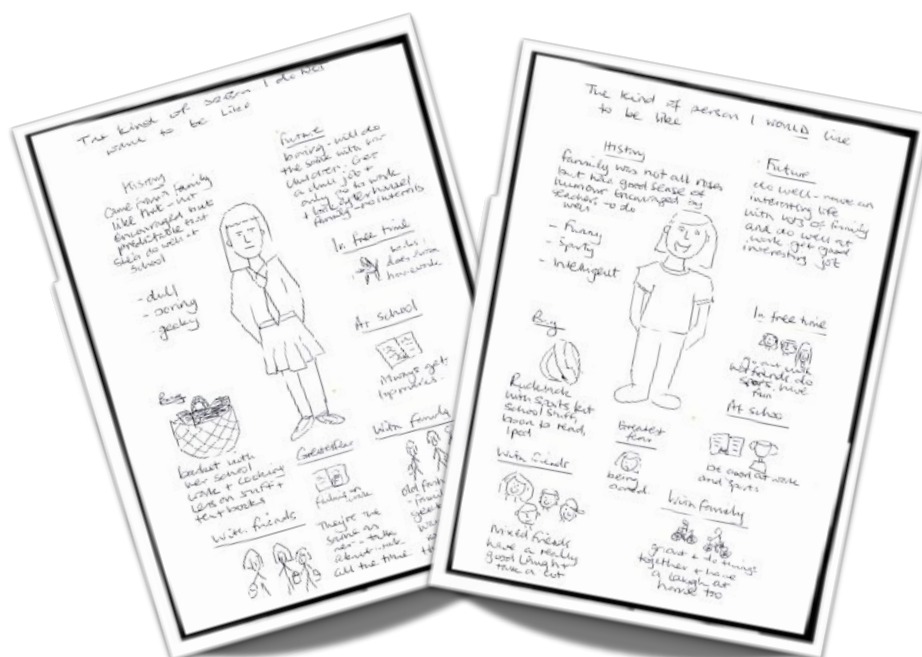 The kind of person I do NOT
want to be like
History
Came from a family
like that - not
encouraged but
predictable that
she'd do well at
school
- dull
- boring
- geeky
Bag
basket with
her school
work + cooking
lesson stuff +
textbooks
With friends
Future
boring - will do
the same with
children. Get
a dull job +
only go to work
+ look after house/
family - no interests
In free time
does
homework
At school
Always gets
top marks.
Greatest fear
failing
They're the
same as
her - talk
about work
all the time
With family
old
The kind of person I WOULD like
to be like
History
family was not all roses
but has good sense of
humour encouraged by
teachers to do
well
- Funny
- Sporty
- Intelligent
Bag
Rucksack
with sports kit
school stuff,
book to read,
Ipod
With friends
Mixed friends
have a really
good laugh +
talk a lot
Greatest
fear
being
Future
do well - have an
interesting life
with lots of family
and do well at
work get good
interesting job
In free time
go out with
friends do
sports have
fun
At school
be good at work
and sports
With family
go out + do things
together + have
a laugh at
home too